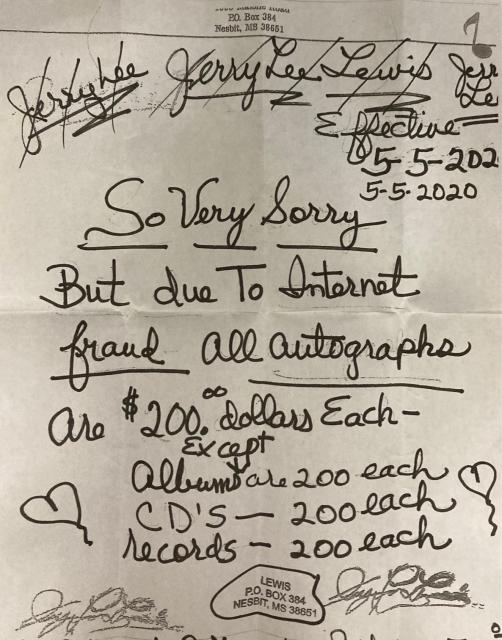 P.O. Box 384
Nesbit, MS 38651
Jerry Lee Jerry Lee Lewis Jerr
Le
Effective
5-5-202
5-5-2020
So Very Sorry
But due To Internet
fraud all autographs
are $200.00 dollars Each-
Except
albums are 200 each
CD'S - 200 each
records - 200 each
LEWIS
P.O. BOX 384
NESBIT, MS 38651